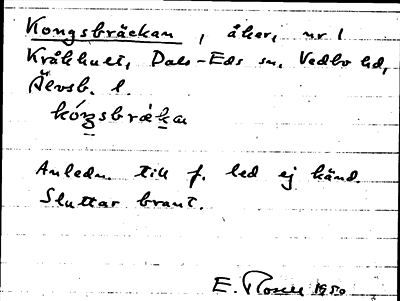 Kongsbräckan, åker, nr 1
Kråkhult, Dals-Eds sn, Vedbo hd,
Älvsb. l.
Anledn. till f. led ej känd.
Sluttar brant.
E. Rosell 1950